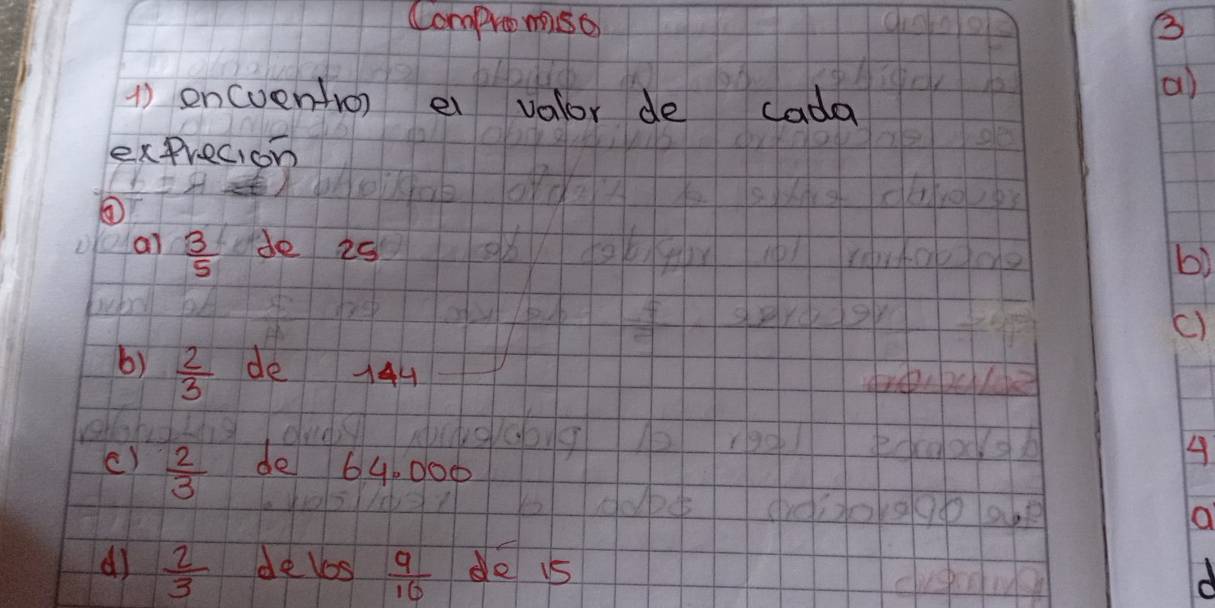 Compromiso
1) encuentro el valor de cada
exprecion
①
a) 3/5 de 25
b) 2/3 de 144
c) 2/3 de 64.000
d) 2/3 de los 9/10 de 15
3
a)
b)
c)
4
a
d